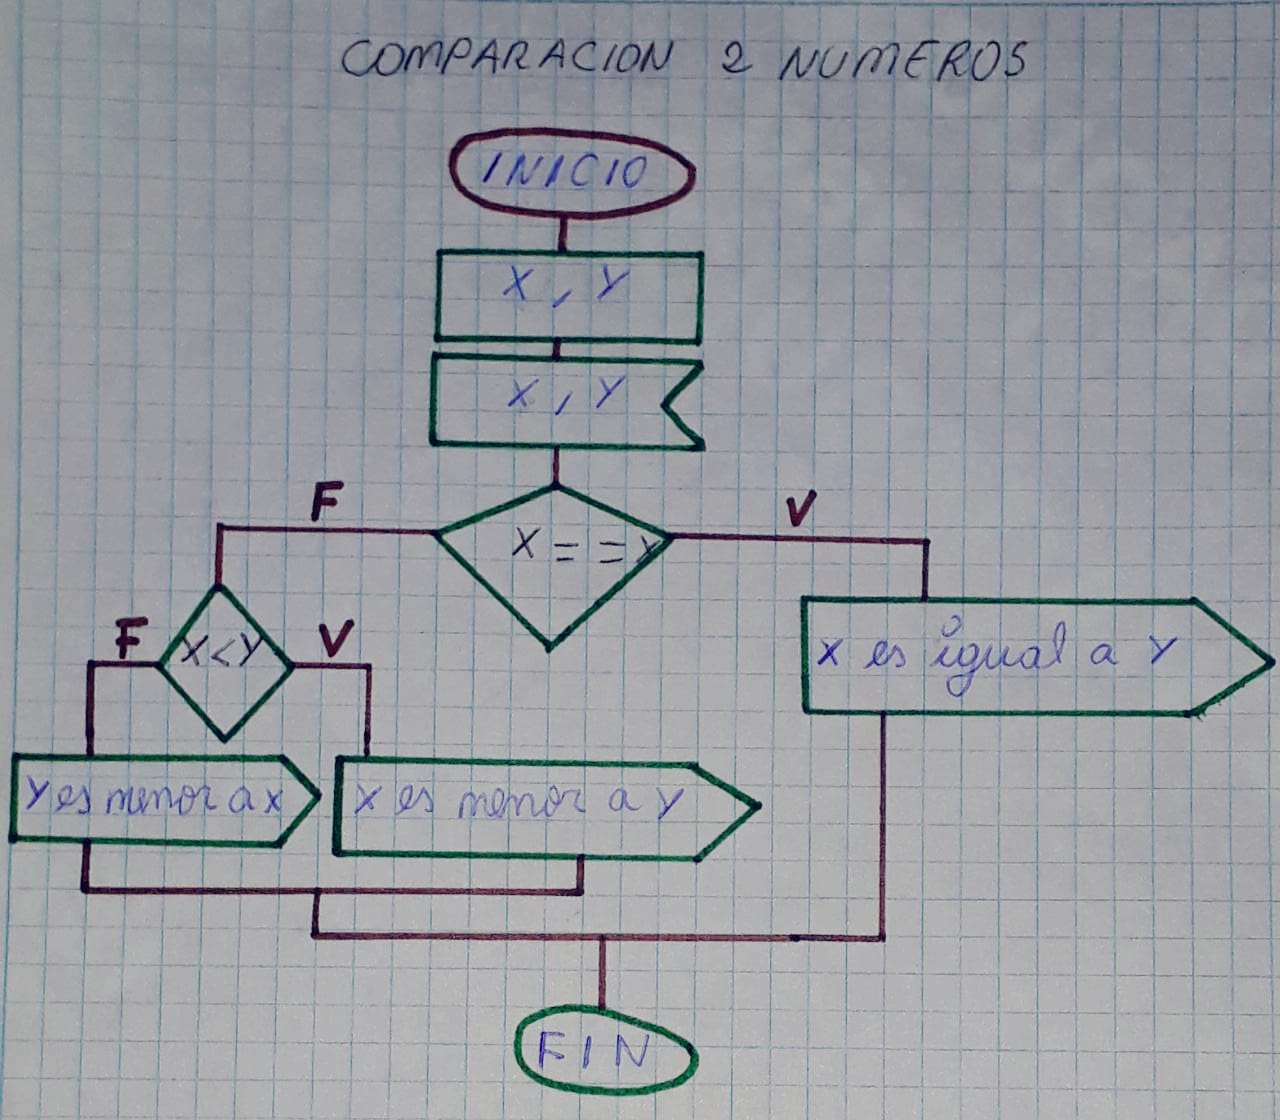 COMPARACION 2 NUMEROS
INICIO
X, Y
X, Y
F
V
X == Y
F
X < Y
V
X es igual a Y
Y es menor a X
X es menor a Y
FIN